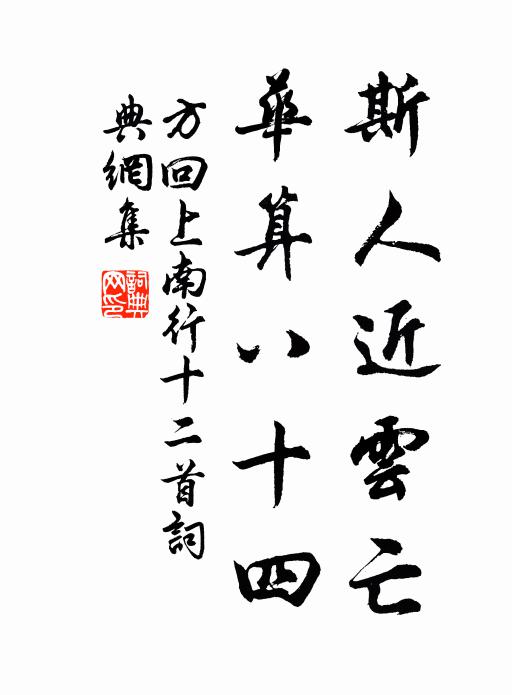 斯人近雲亡
華算八十四
方回上南行十二首詞
典網集
詞典网印